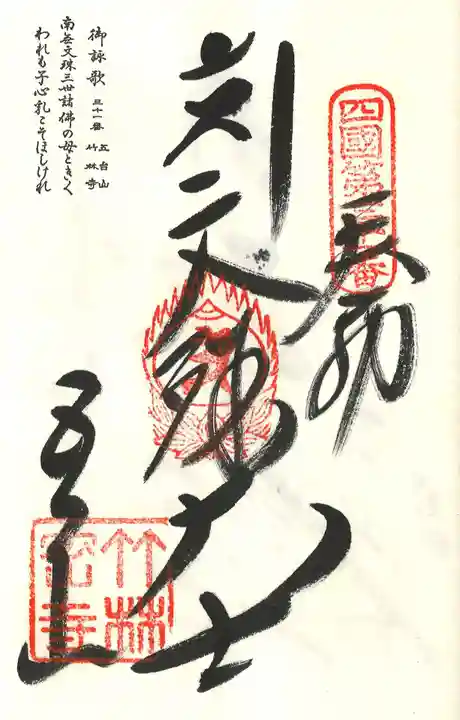 四國第三十一番
奉納
文殊大士
五台山
竹林密寺
御詠歌 三十一番 五台山 竹林寺
南無文珠三世諸佛の母ときく
われも子心乳こそほしけれ